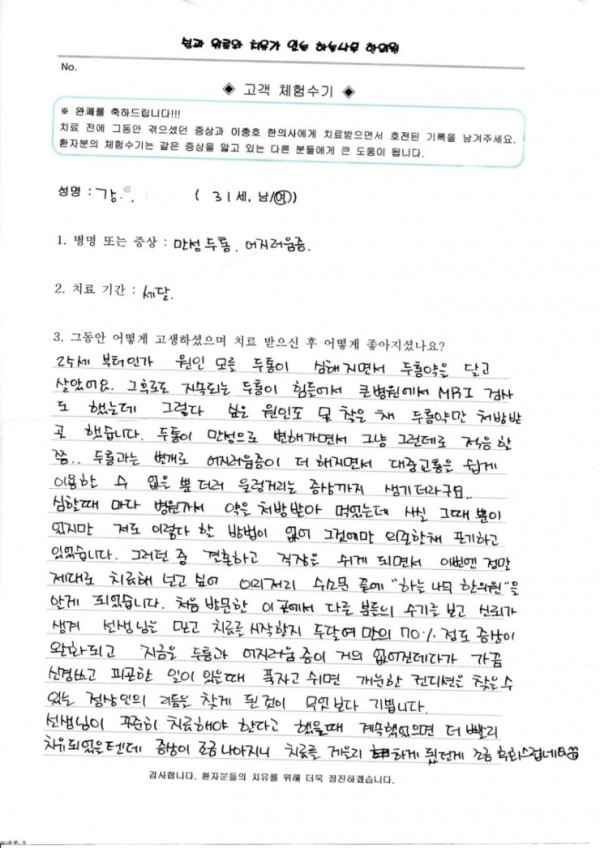 No.
◈ 고객 체험수기 ◈
※ 완쾌를 축하드립니다!!!
치료 전에 그동안 겪으셨던 증상과 이충호 한의사에게 치료받으면서 호전된 기록을 남겨주세요.
환자분의 체험수기는 같은 증상을 앓고 있는 다른 분들에게 큰 도움이 됩니다.
성명 : 강 ( 31세, 남/여)
1. 병명 또는 증상 : 만성두통. 어지러움증.
2. 치료 기간 : 세달.
3. 그동안 어떻게 고생하셨으며 치료 받으신 후 어떻게 좋아지셨나요?
25세 부터인가 원인 모를 두통이 심해지면서 두통약을 달고
살았어요. 그후로도 지속되는 두통이 힘들어서 큰병원에서 MRI 검사
도 했는데 그렇다 싶은 원인도 못 찾은 채 두통약만 처방받
곤 했습니다. 두통이 만성으로 변해가면서 그냥 그런데로 적응할
쯤.. 두통과는 별개로 어지러움증이 더해지면서 대중교통은 쉽게
이용할 수 없을 뿐더러 울렁거리는 증상까지 생기더라구요..
심할때 마다 병원가서 약을 처방받아 먹었는데 사실 그때뿐이
었지만 저도 이렇다 할 방법이 없어 그것에만 의존한채 포기하고
있었습니다. 그러던 중 결혼하고 직장을 쉬게 되면서 이번엔 정말
제대로 치료해 보고 싶어 이리저리 수소문 끝에 "하늘나무 한의원"을
알게 되었습니다. 처음 방문한 이곳에서 다른 분들의 수기를 보고 신뢰가
생겨 선생님을 믿고 치료를 시작한지 두달여 만의 70% 정도 증상이
완화되고 지금은 두통과 어지러움증이 거의 없어진데다가 가끔
신경쓰고 피곤한 일이 있을때 푹자고 쉬면 개운한 컨디션을 찾을수
있는 정상인의 리듬을 찾게 된것이 무엇보다 기쁩니다.
선생님이 꾸준히 치료해야 한다고 했을때 계속했었으면 더 빨리
치유되었을텐데 증상이 조금 나아지니 치료를 게을리 하게 됐던게 조금 후회스럽네요
감사합니다. 환자분들의 치유를 위해 더욱 정진하겠습니다.